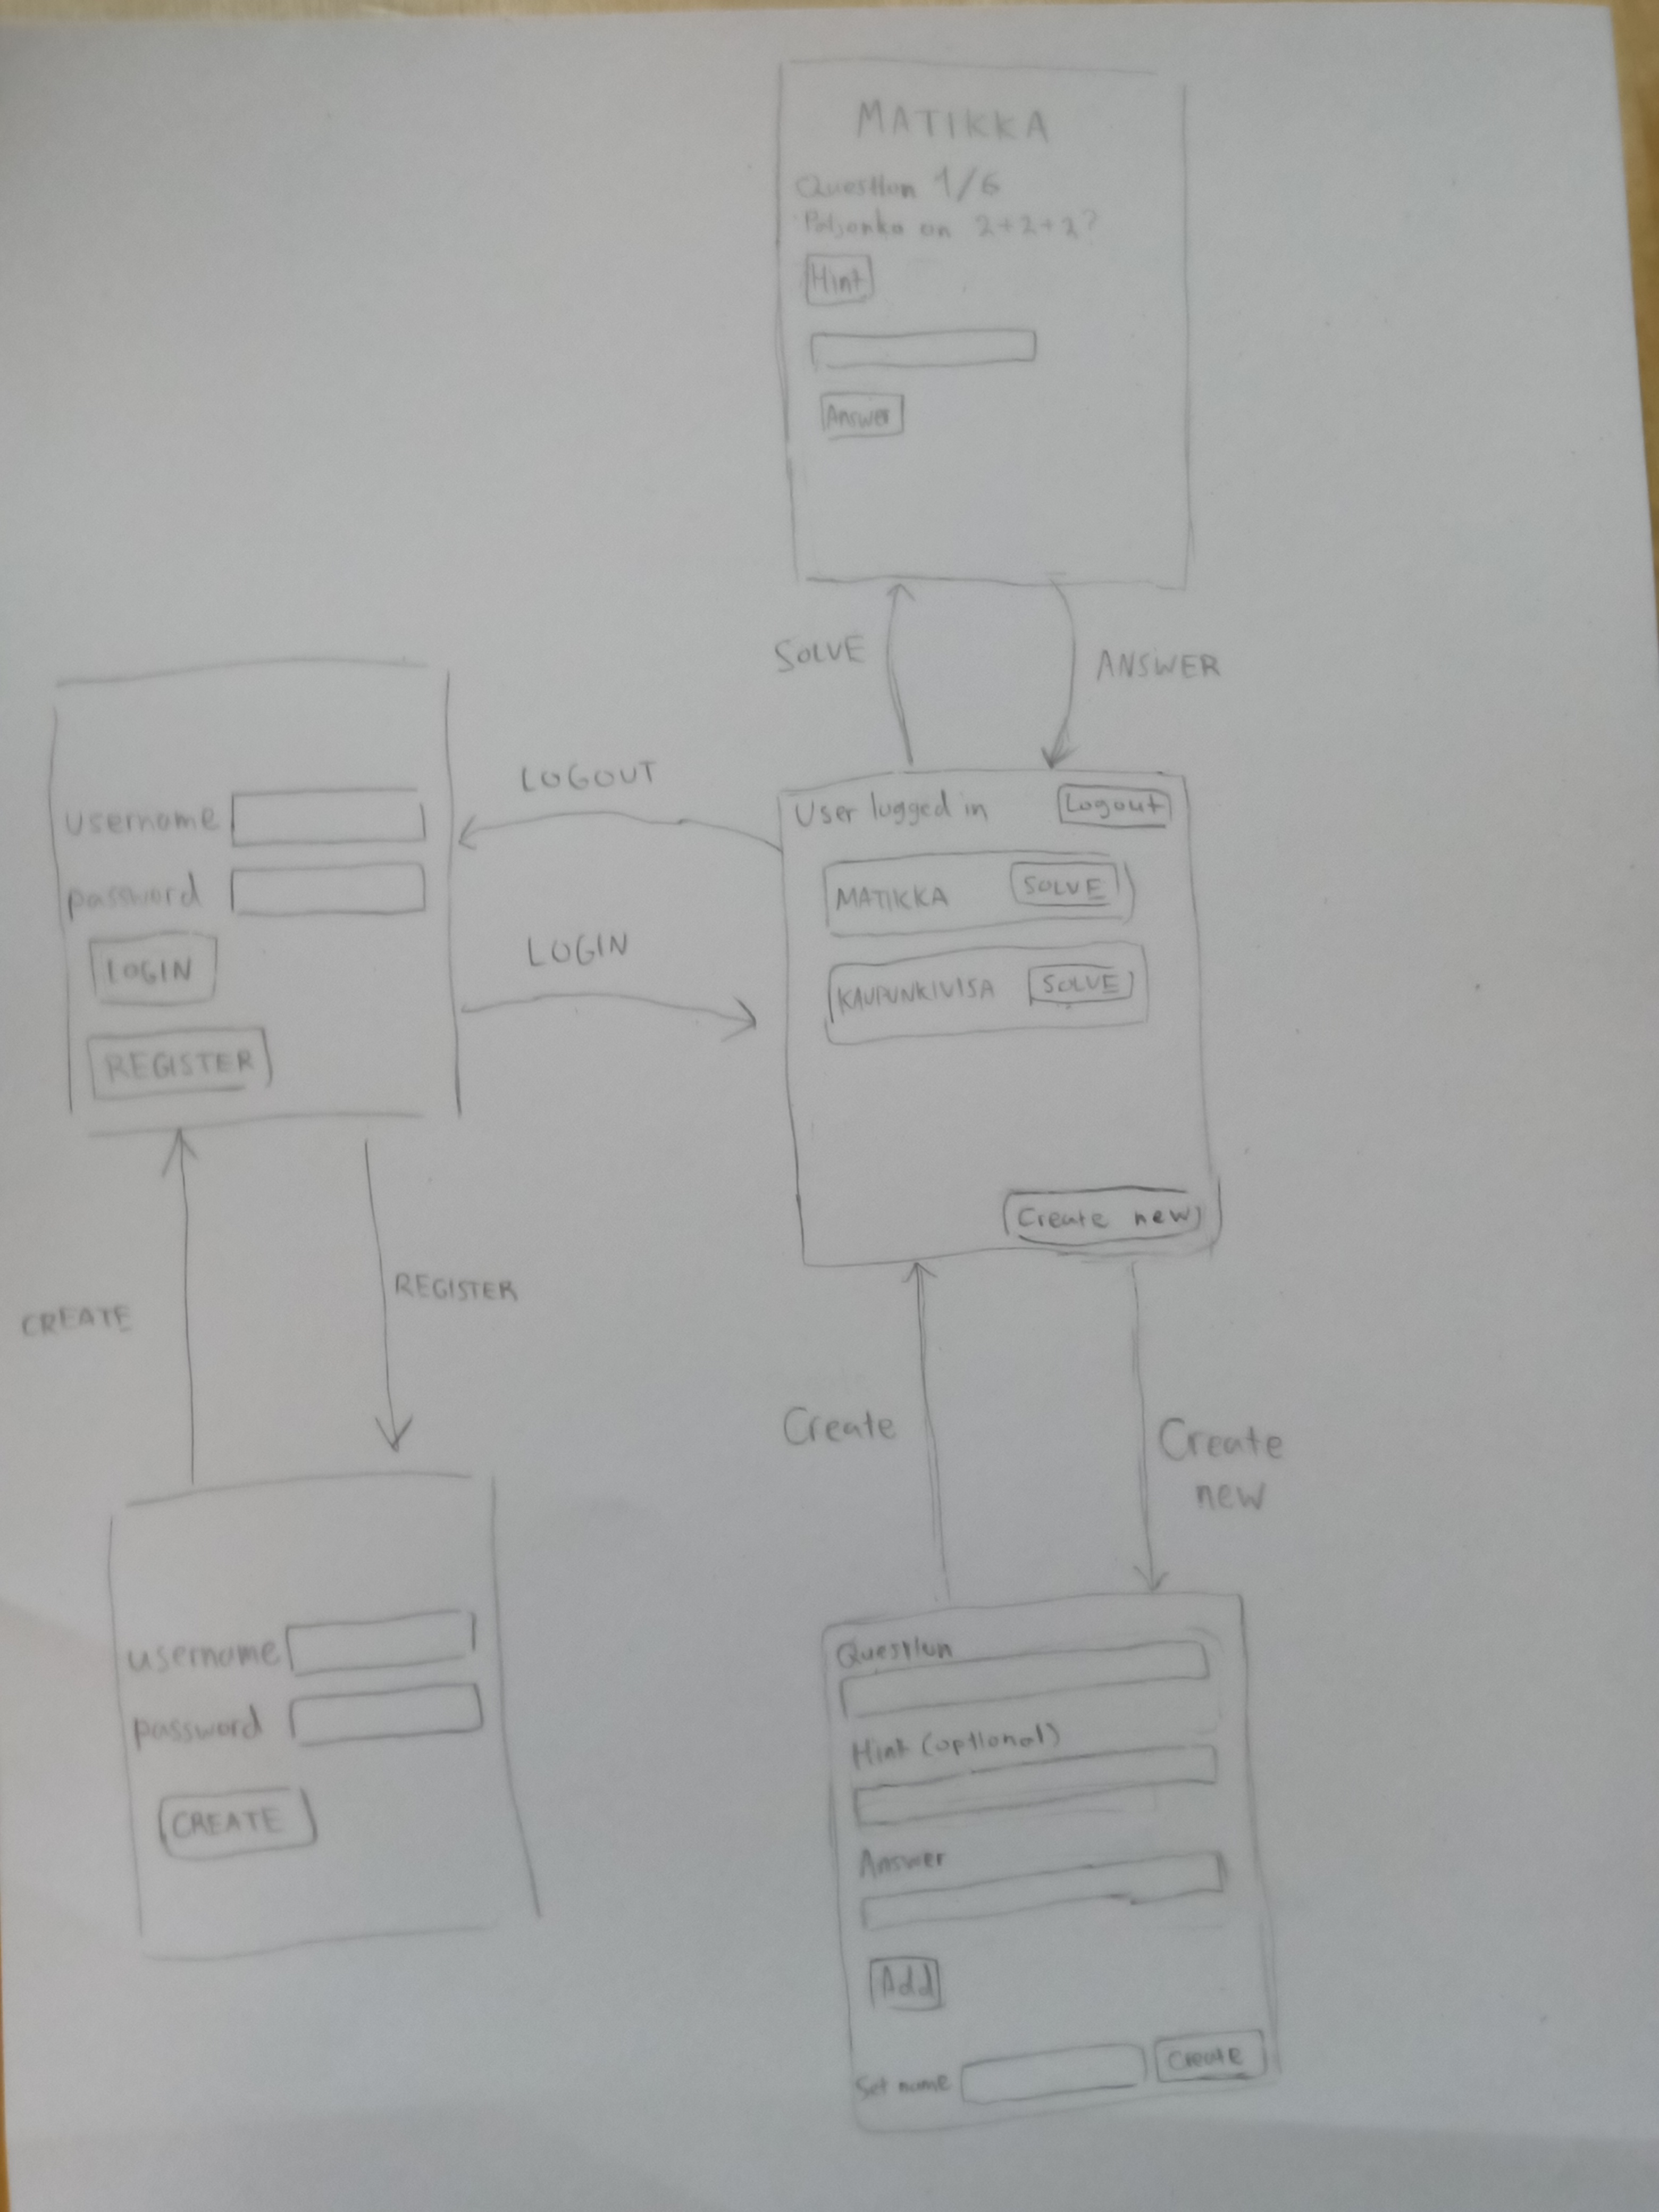 MATIKKA
Question 1/6
Paljonko on 2+2+2?
Hint
Answer
SOLVE
ANSWER
username
password
LOGIN
REGISTER
LOGOUT
LOGIN
User logged in
Logout
MATIKKA SOLVE
KAUPUNKIVISA SOLVE
Create new
CREATE
REGISTER
Create
Create
new
username
password
CREATE
Question
Hint (optional)
Answer
Add
Set name
Create